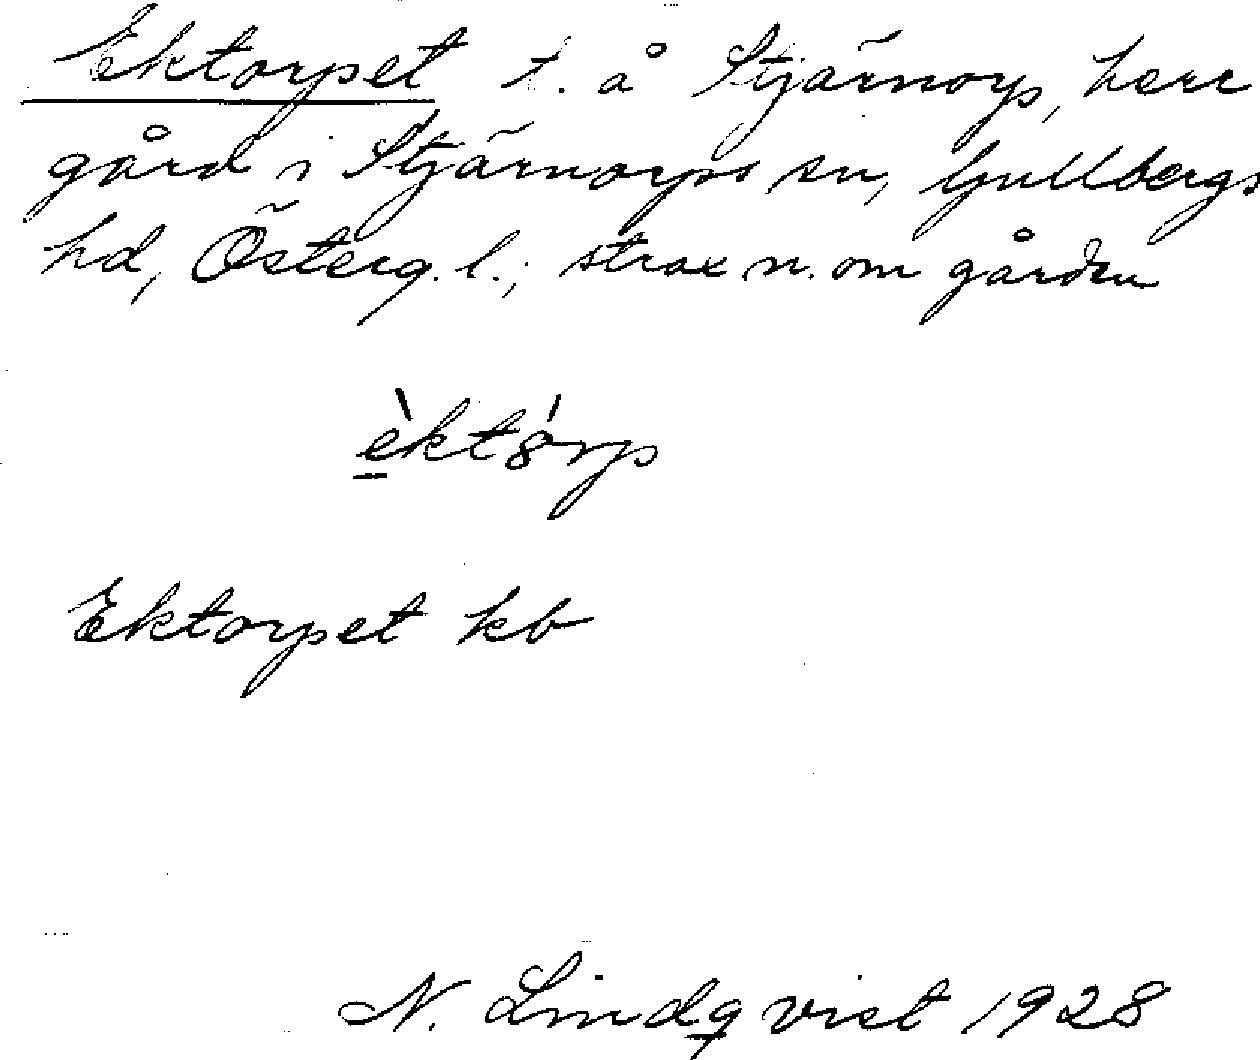 Ektorpet t. å Stjärnorp, herr
gård i Stjärnorps sn, Gullbergs
hd, Österg. l.; strax n. om gården
Ektorpet kb
N. Lindqvist 1928